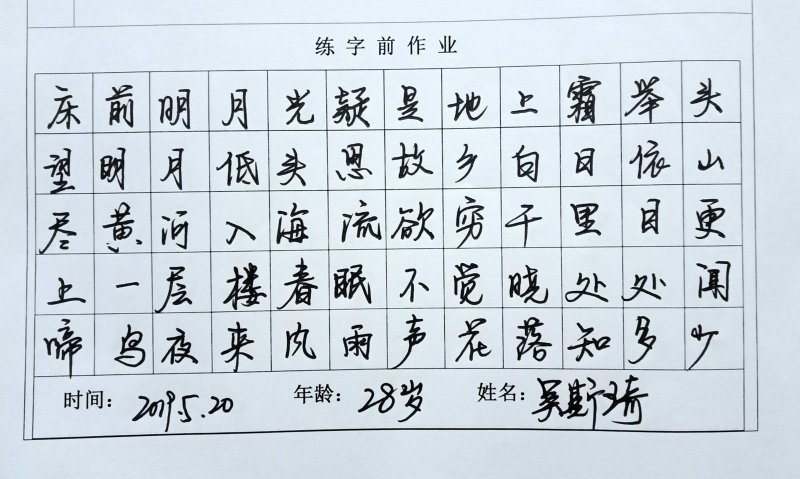 练字前作业
床前明月光疑是地上霜举头
望明月低头思故乡白日依山
尽黄河入海流欲穷千里目更
上一层楼春眠不觉晓处处闻
啼鸟夜来风雨声花落知多少
时间：2019.5.20 年龄：28岁 姓名：吴斯琦